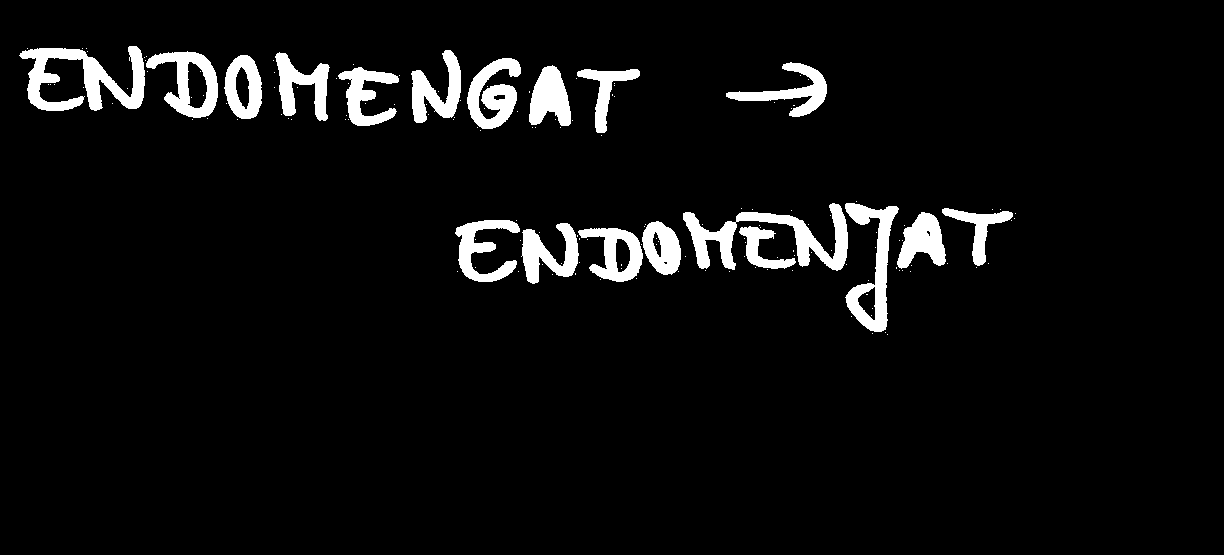 ENDOMENGAT →
ENDOMENJAT